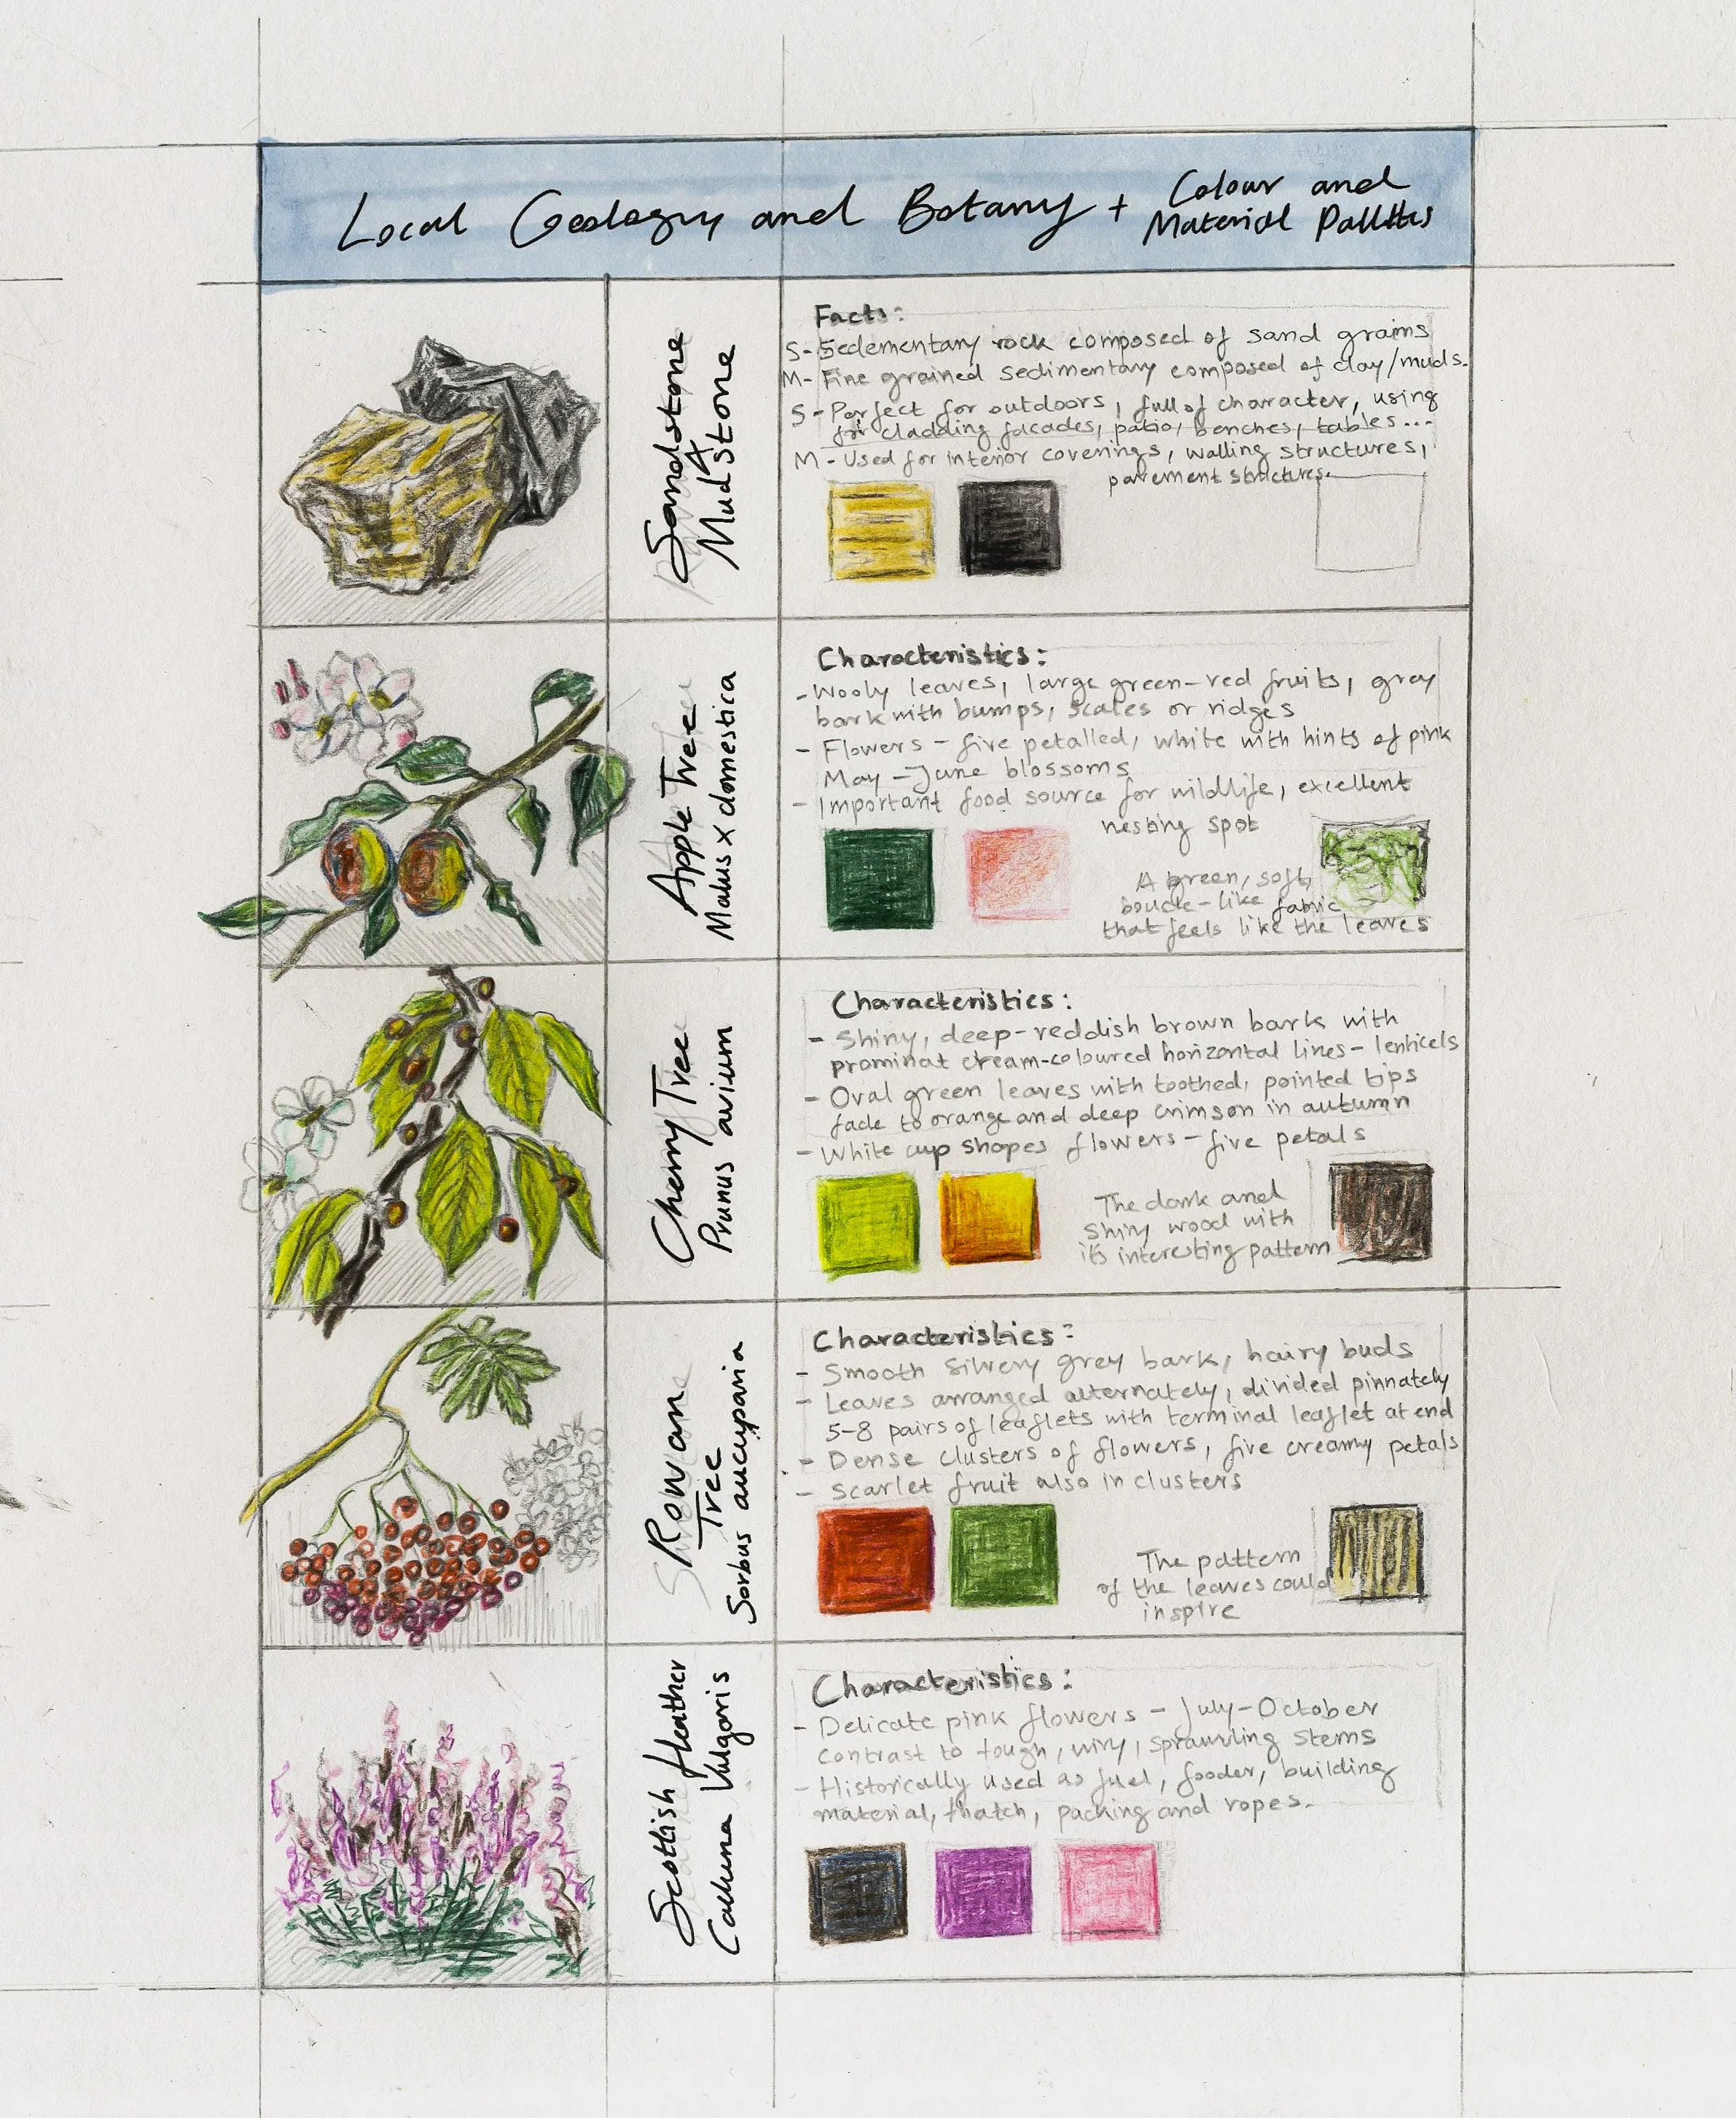 Local Geology and Botany + Colour and
Material Palettes
Sandstone
&
Mudstone
Facts:
S- Sedementary rock composed of sand grains
M- Fine grained sedimentary composed of clay/muds.
S - Perfect for outdoors, full of character, using
for cladding facades, patio, benches, tables...
M - Used for interior coverings, walling structures,
pavement structures.
Apple Tree
Malus x domestica
Characteristics:
- Wooly leaves, large green-red fruits, grey
bark with bumps, scales or ridges
- Flowers - five petalled, white with hints of pink
May - June blossoms
- Important food source for wildlife, excellent
nesting spot
A green, soft,
boucle-like fabric
that feels like the leaves
Cherry Tree
Prunus avium
Characteristics:
- Shiny, deep-reddish brown bark with
prominat cream-coloured horizontal lines - lenticels
- Oval green leaves with toothed, pointed tips
fade to orange and deep crimson in autumn
- White cup shapes flowers - five petals
The dark and
shiny wood with
its interesting pattern
Rowan
Tree
Sorbus aucuparia
Characteristics:
- Smooth silvery grey bark, hairy buds
- Leaves arranged alternately, divided pinnately
5-8 pairs of leaflets with terminal leaflet at end
- Dense clusters of flowers, five creamy petals
- Scarlet fruit also in clusters
The pattern
of the leaves could
inspire
Scottish Heather
Calluna Vulgaris
Characteristics:
- Delicate pink flowers - July-October
contrast to tough, wiry, sprawling stems
- Historically used as fuel, fooder, building
material, thatch, packing and ropes.